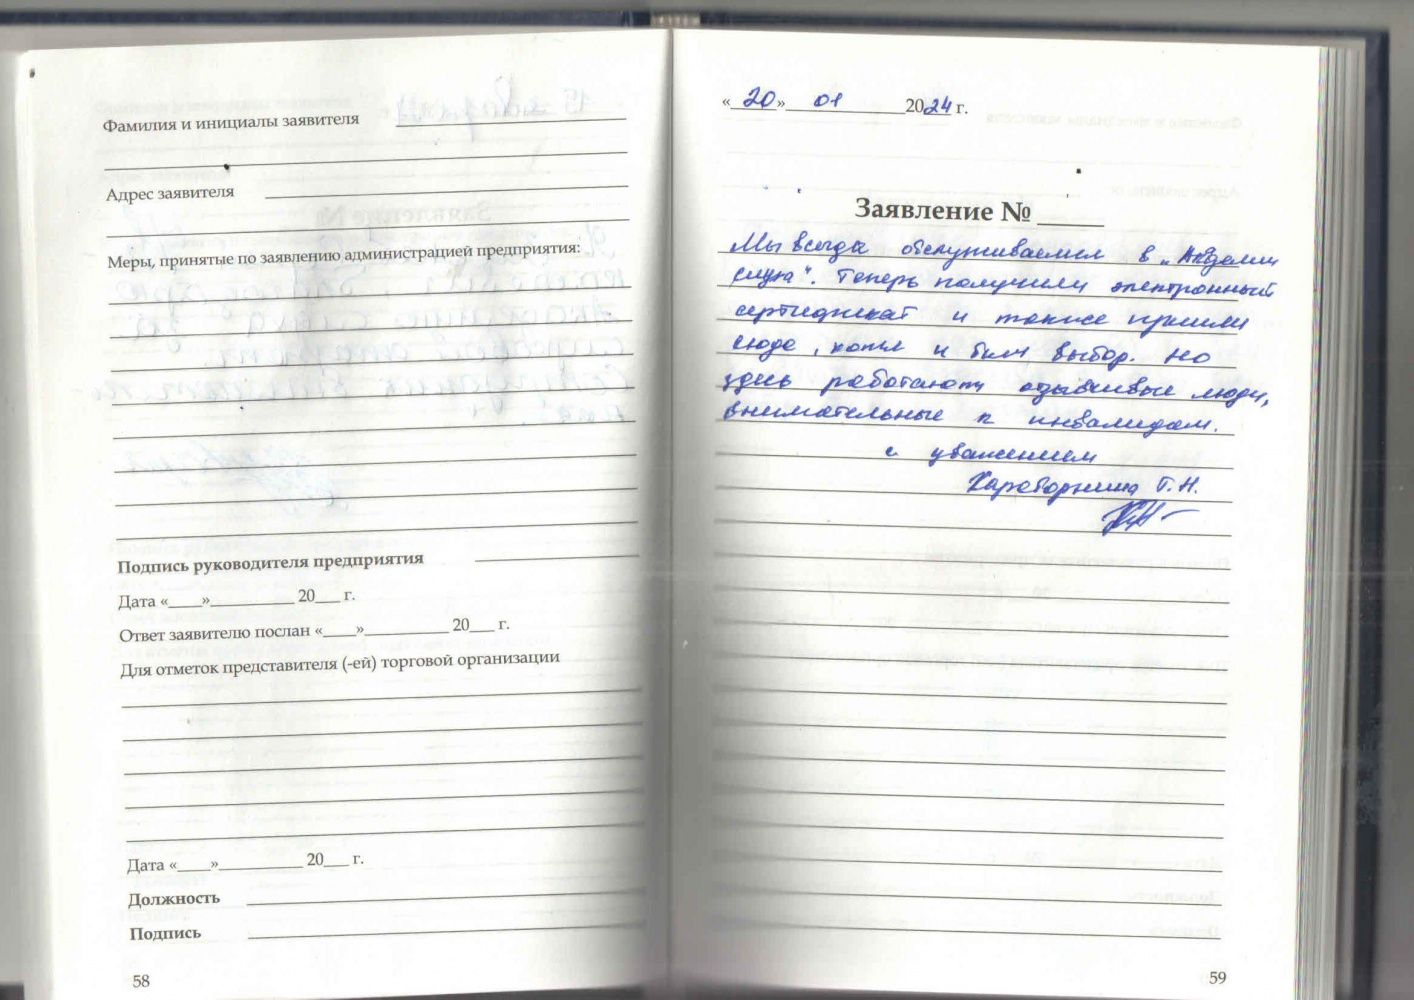 Фамилия и инициалы заявителя
Адрес заявителя
Меры, принятые по заявлению администрацией предприятия:
Подпись руководителя предприятия
Дата «____»__________ 20___ г.
Ответ заявителю послан «____»__________ 20___ г.
Для отметок представителя (-ей) торговой организации
Дата «____»__________ 20___ г.
Должность
Подпись
58
« 20 » 01 2024 г.
Заявление №
Мы всегда обслуживаемся в „Академии
слуха". Теперь получили электронный
сертификат и также пришли
сюда, хотя и был выбор. Но
здесь работают отзывчивые люди,
внимательные к инвалидам.
с уважением
Т.Н.
59